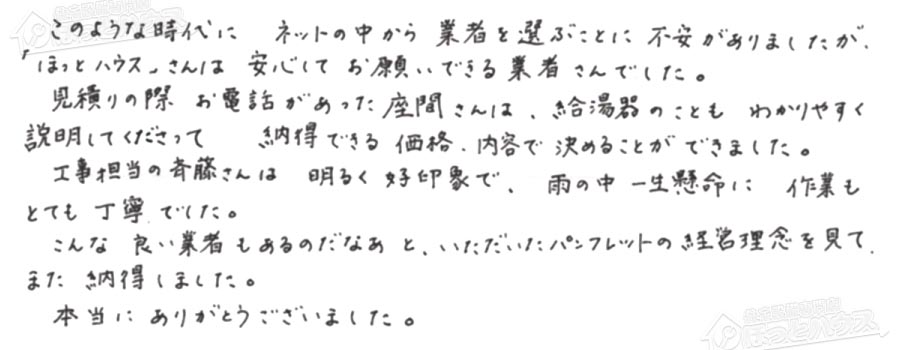 このような時代に ネットの中から 業者を選ぶことに 不安がありましたが、
「ほっとハウス」さんは 安心して お願いできる業者さんでした。
見積りの際 お電話があった座間さんは、給湯器のことも わかりやすく
説明してくださって 納得できる 価格、内容で 決めることができました。
工事担当の斉藤さんは 明るく 好印象で、雨の中 一生懸命に 作業も
とても 丁寧でした。
こんな 良い業者もあるのだなあと、いただいたパンフレットの経営理念を見て、
また 納得しました。
本当に ありがとうございました。
ほっとハウス